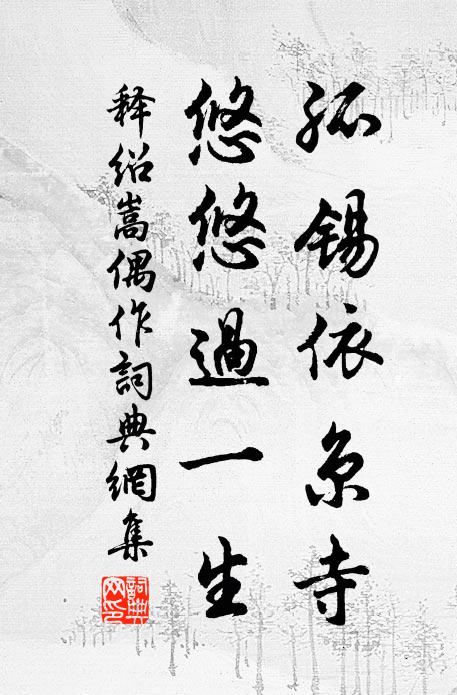 孤錫依京寺
悠悠過一生
释绍嵩偶作詞典網集
詞典
网印